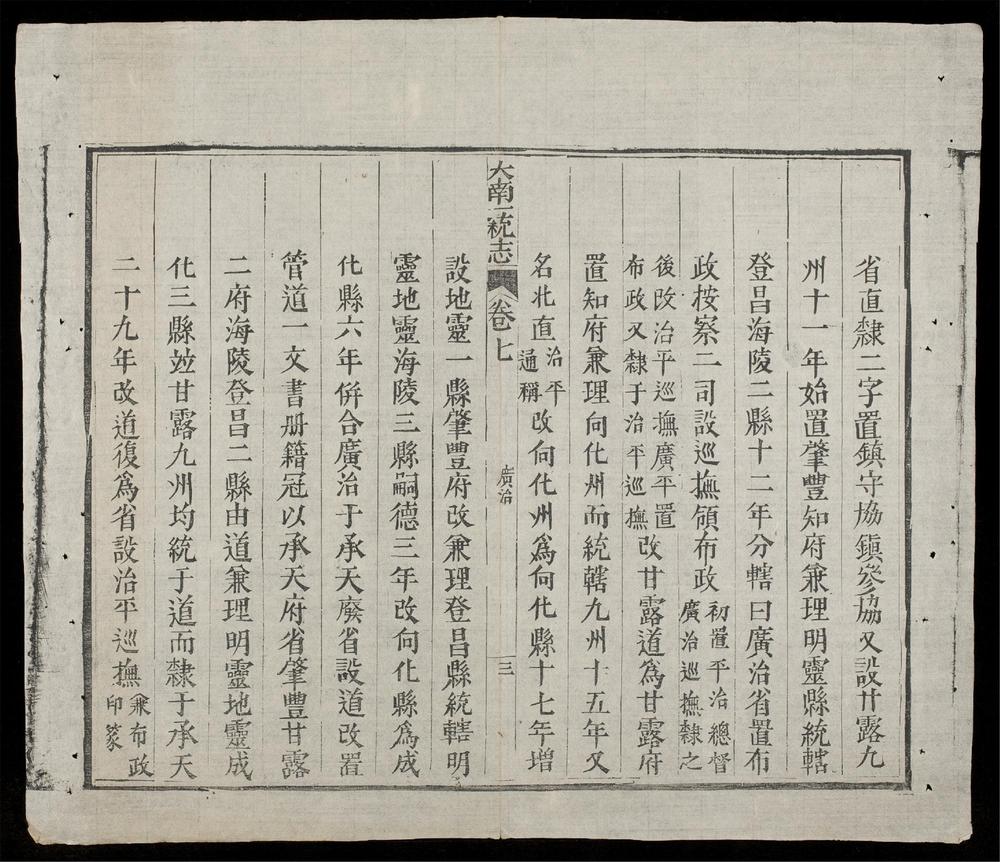 省直隸二字置鎮守協鎮參協又設甘露九
州十一年始置肇豐知府兼理明靈縣統轄
登昌海陵二縣十二年分轄曰廣治省置布
政按察二司設巡撫領布政初置平治總督廣治巡撫隸之
後改治平巡撫廣平置布政又隸于治平巡撫改甘露道為甘露府
置知府兼理向化州而統轄九州十五年又
名北直治平通稱改向化州為向化縣十七年增
大南一統志 卷七 廣治 三
設地靈一縣肇豐府改兼理登昌縣統轄明
靈地靈海陵三縣嗣德三年改向化縣為成
化縣六年併合廣治于承天廢省設道改置
管道一文書册籍冠以承天府省肇豐甘露
二府海陵登昌二縣由道兼理明靈地靈成
化三縣竝甘露九州均統于道而隸于承天
二十九年改道復為省設治平巡撫兼布政印篆